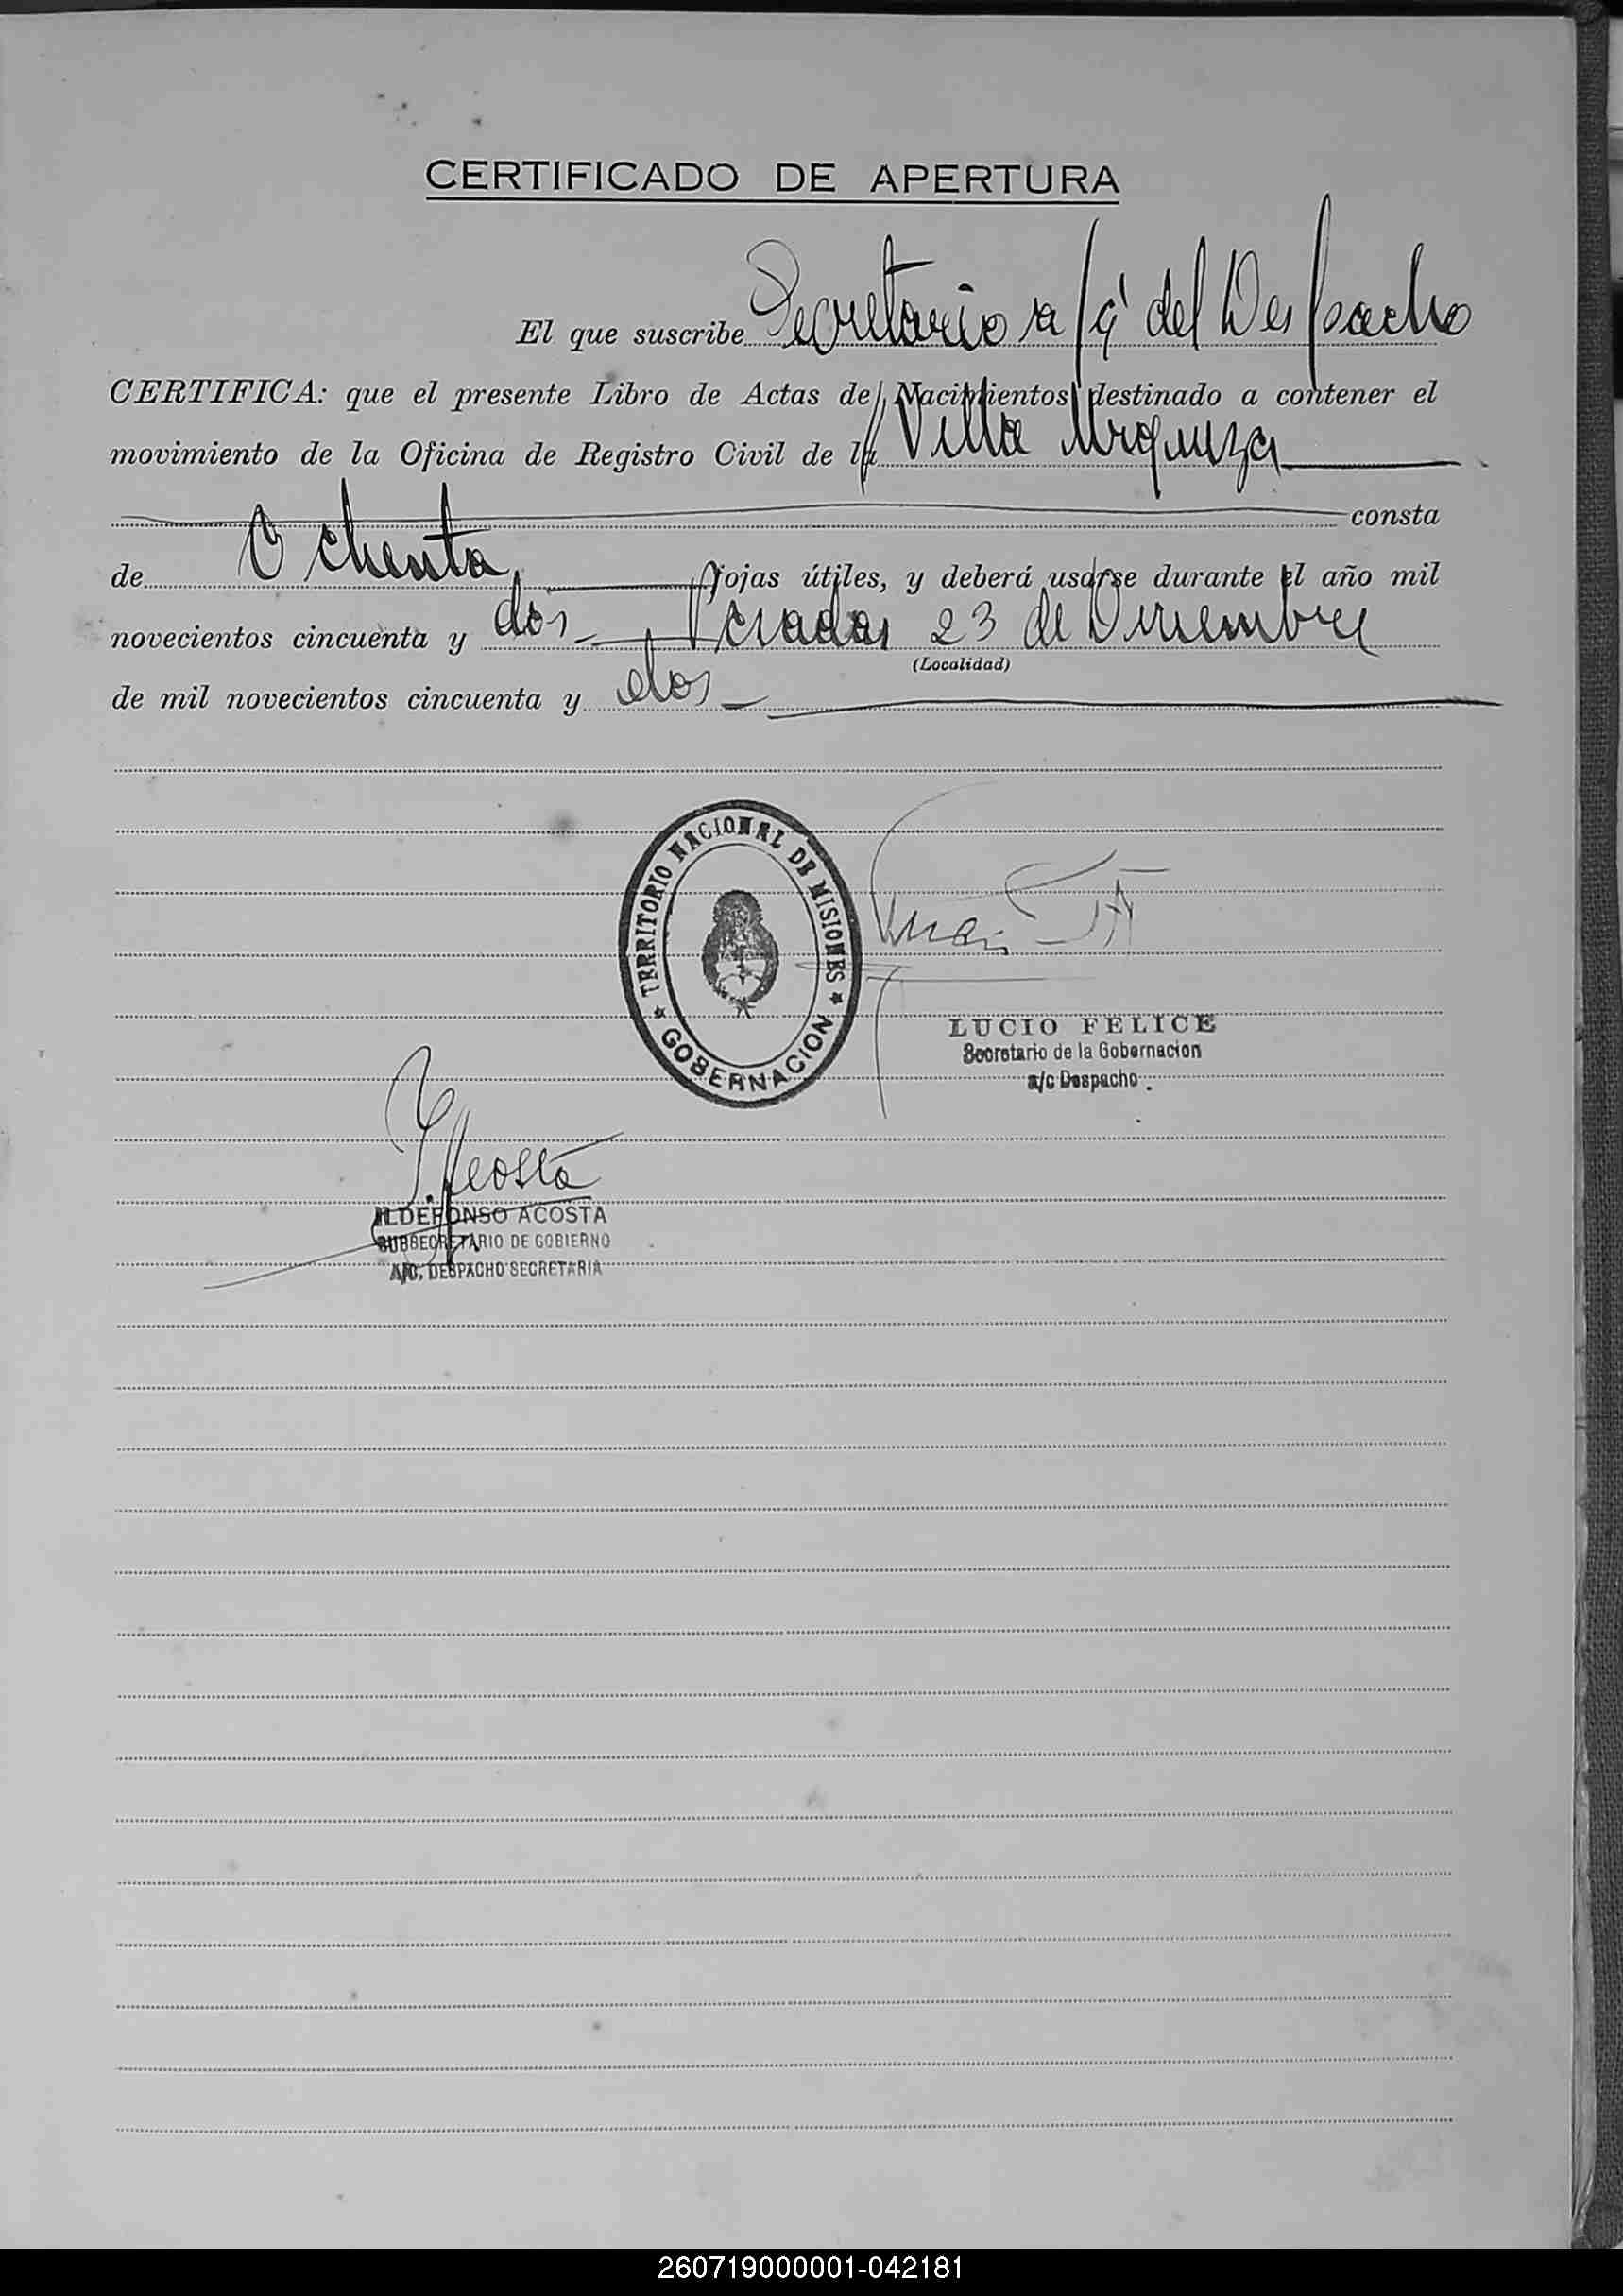 CERTIFICADO DE APERTURA
El que suscribe Secretario a/c del Despacho
CERTIFICA: que el presente Libro de Actas de Nacimientos destinado a contener el
movimiento de la Oficina de Registro Civil de la Villa Urquiza
consta
de Ochenta fojas útiles, y deberá usarse durante el año mil
novecientos cincuenta y dos Posadas 23 de Diciembre
(Localidad)
de mil novecientos cincuenta y dos
TERRITORIO NACIONAL DE MISIONES
GOBERNACION
LUCIO FELICE
Secretario de la Gobernacion
a/c Despacho.
I. Acosta
ILDEFONSO ACOSTA
SUBSECRETARIO DE GOBIERNO
A/C. DESPACHO SECRETARIA
260719000001-042181